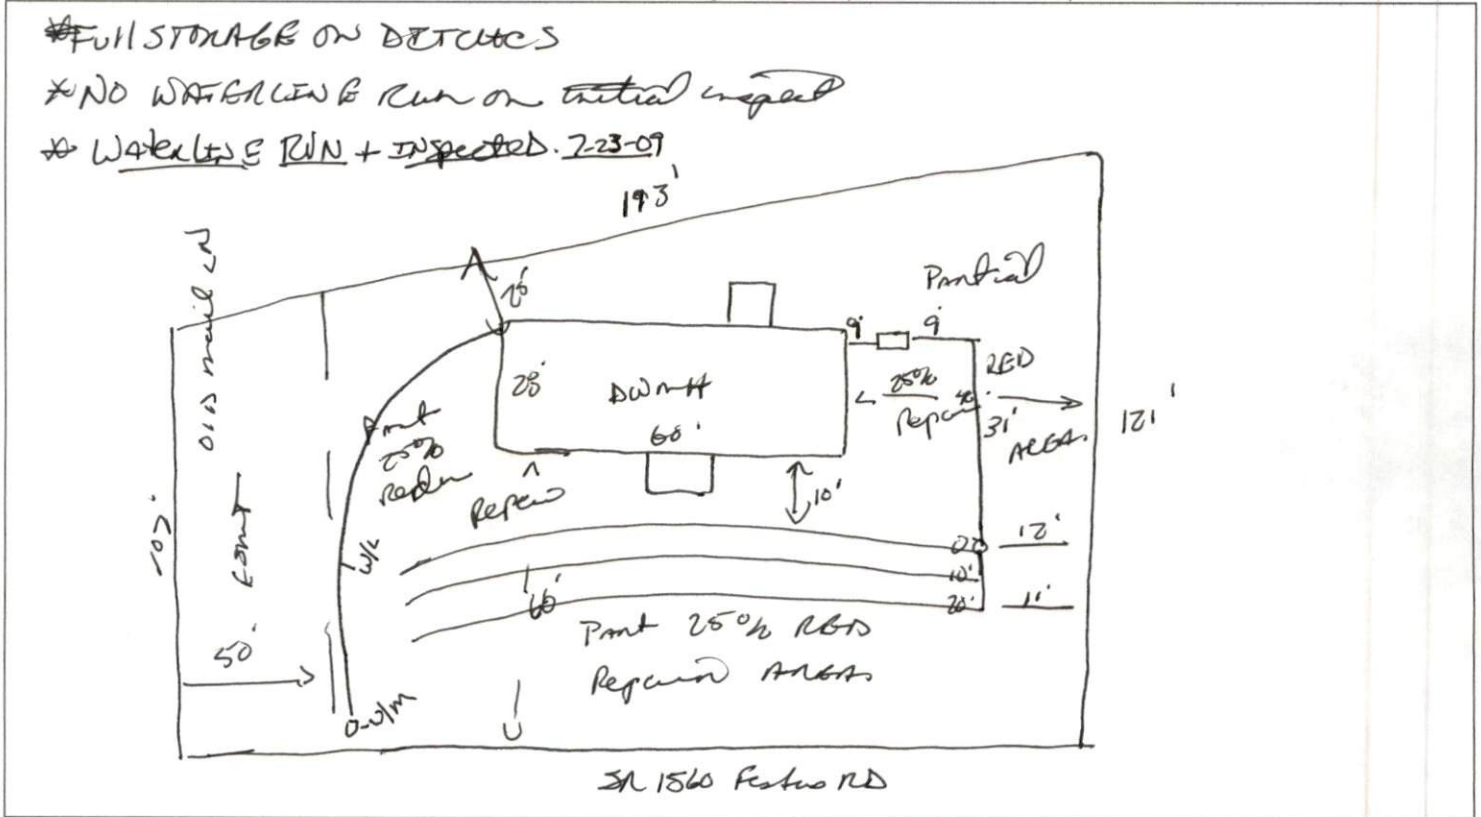 * Full STORAGE ON DITCHES
* NO WATERLINE Run on initial inspect
* WATERLINE RUN + INSPECTED. 2-23-09
193'
OLD mail LN
Partial
9'
9'
RED
28'
DWMH
25%
Repair
31'
AREA
121'
60'
Part
25%
Repair
10'
W/L
12'
10'
20'
11'
66'
50'
Part 25% RED
Repair AREA
O-W/M
SR 1560 Festus RD